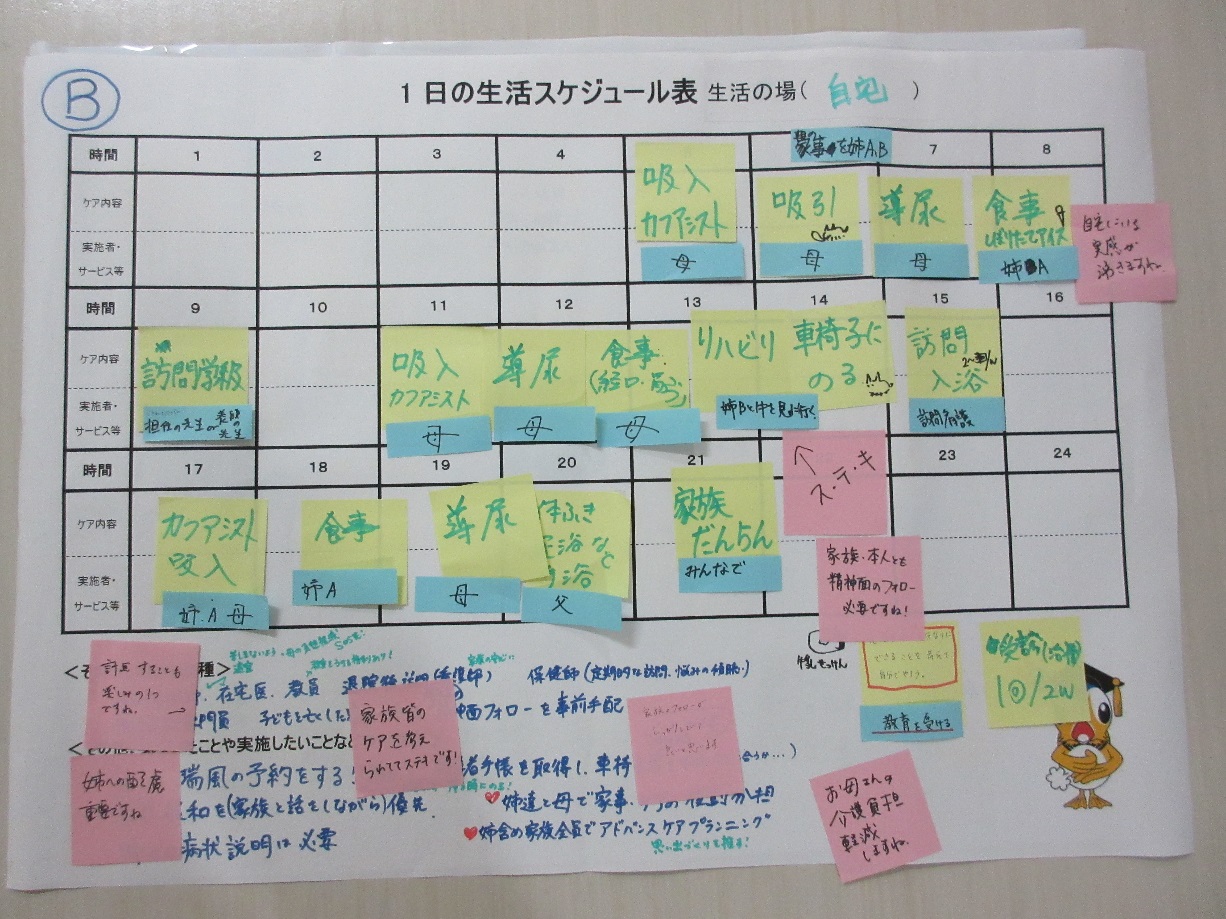 B
1日の生活スケジュール表 生活の場( 自宅 )
時間 1 2 3 4 7 8
を姉A,B
ケア内容
実施者・
サービス等
吸入
カフアシスト
母
吸引
母
導尿
母
食事
しぼりたてアイス
姉A
自宅にいる
実感が
湧きますね
時間 9 10 11 12 13 14 15 16
ケア内容
実施者・
サービス等
訪問学級
担任の先生or
先生
吸入
カフアシスト
母
導尿
母
食事
母
リハビリ
車椅子に
のる
訪問
入浴
訪問看護
時間 17 18 19 20 21 23 24
ケア内容
実施者・
サービス等
カフアシスト
吸入
姉.A 母
食事
姉A
導尿
母
体ふき
足浴など
浴
父
家族
だんらん
みんなで
↑
ス・テ・キ
家族・本人とも
精神面のフォロー
必要ですね!
計画することも
楽しみの1つ
ですね。→
種>
在宅医、教員
保健師(定期的な訪問、悩みの傾聴)
門員 子どもを亡くした
神面フォローを事前手配
家族皆の
ケアを考え
られててステキです!
教育を受ける
10/2W
たことや実施したいことなど
姉への配慮
重要ですね
瑞風の予約をする
者手帳を取得し、車椅
和を(家族と話をしながら)優先
姉達と母で家事
担
病状説明は必要
姉含め家族全員でアドバンスケアプランニング
思い出づくりも撮る!
お母さんの
介護負担
軽減
しますね。